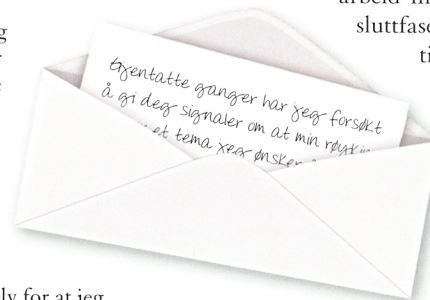 g
arbeid
sluttfase
ti
Gjentatte ganger har jeg forsøkt
å gi deg signaler om at min
et tema jeg ønsker
ly for at jeg